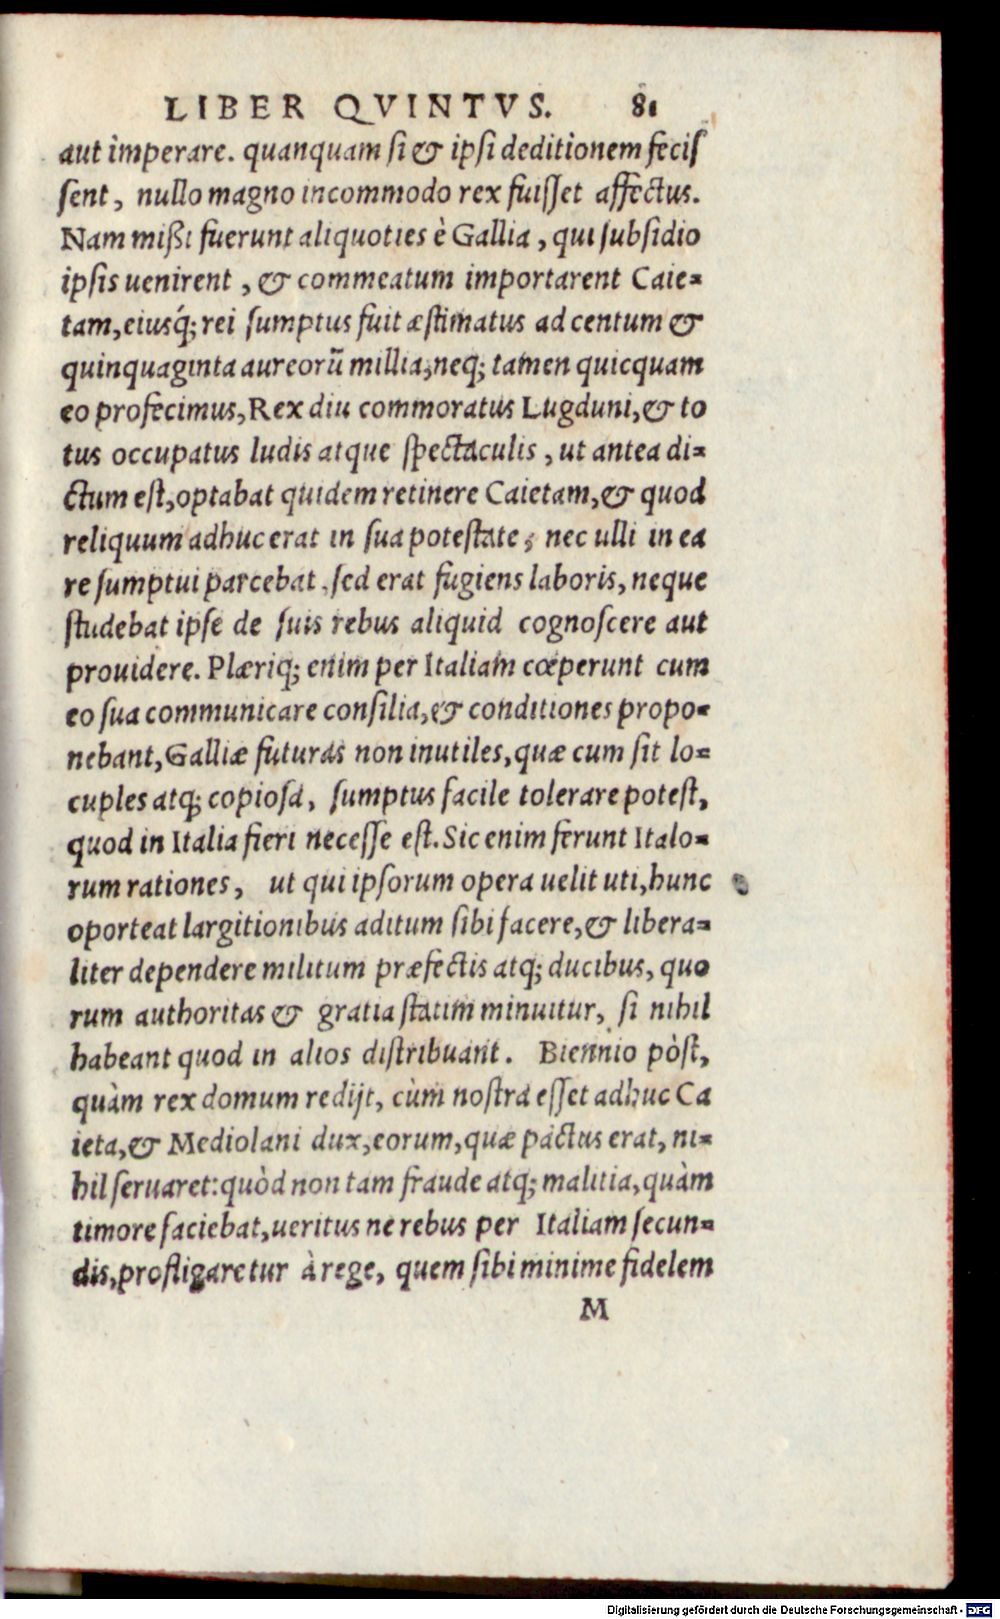 LIBER QVINTVS. 81
aut imperare. quanquam si & ipsi deditionem fecis
sent, nullo magno incommodo rex fuisset affectus.
Nam mißi fuerunt aliquoties è Gallia, qui subsidio
ipsis uenirent, & commeatum importarent Caie=
tam, eiusq́; rei sumptus fuit æstimatus ad centum &
quinquaginta aureorũ millia, neq; tamen quicquam
eo profecimus, Rex diu commoratus Lugduni, & to
tus occupatus ludis atque spectaculis, ut antea di=
ctum est, optabat quidem retinere Caietam, & quod
reliquum adhuc erat in sua potestate, nec ulli in ea
re sumptui parcebat, sed erat fugiens laboris, neque
studebat ipse de suis rebus aliquid cognoscere aut
prouidere. Plæriq; enim per Italiam cœperunt cum
eo sua communicare consilia, & conditiones propo=
nebant, Galliæ futuras non inutiles, quæ cum sit lo=
cuples atq; copiosa, sumptus facile tolerare potest,
quod in Italia fieri necesse est. Sic enim ferunt Italo=
rum rationes, ut qui ipsorum opera uelit uti, hunc
oporteat largitionibus aditum sibi facere, & libera=
liter dependere militum præfectis atq; ducibus, quo
rum authoritas & gratia statim minuitur, si nihil
habeant quod in alios distribuant. Biennio pòst,
quàm rex domum redijt, cùm nostra esset adhuc Ca
ieta, & Mediolani dux, eorum, quæ pactus erat, ni=
hil seruaret: quòd non tam fraude atq; malitia, quàm
timore faciebat, ueritus ne rebus per Italiam secun=
dis, profligaretur à rege, quem sibi minime fidelem
M
Digitalisierung gefördert durch die Deutsche Forschungsgemeinschaft - DFG